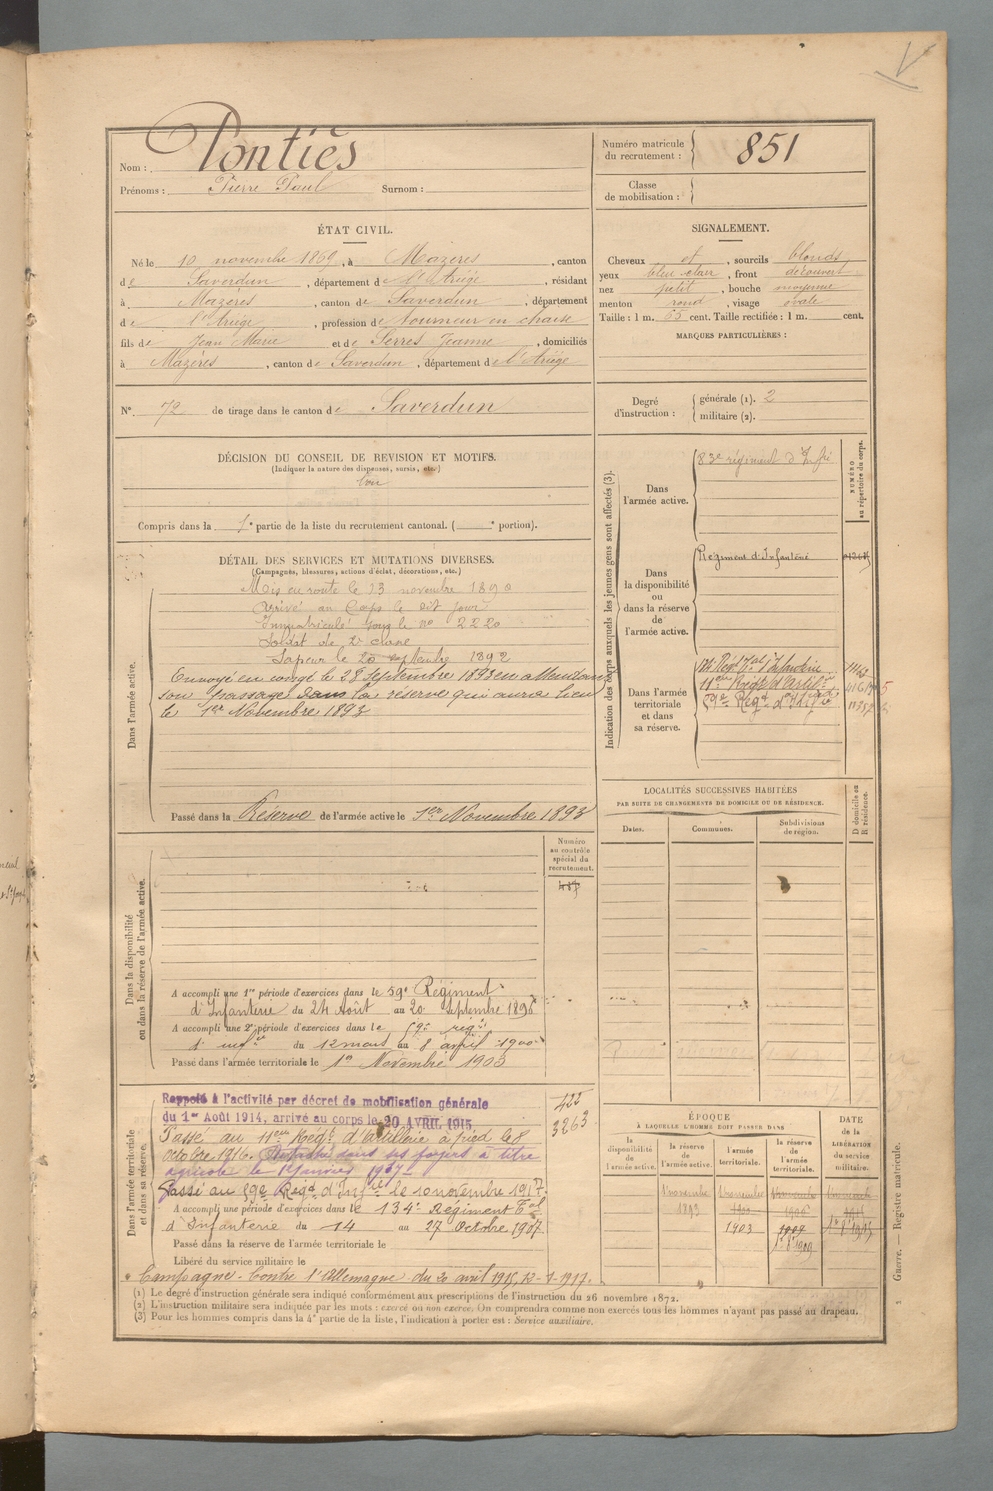 Nom : Pontiès
Prénoms : Pierre Paul Surnom :
Numéro matricule du recrutement : 851
Classe de mobilisation :
ÉTAT CIVIL.
Né le 10 novembre 1869, à Mazères, canton
de Saverdun, département de l'Ariège, résidant
à Mazères, canton de Saverdun, département
de l'Ariège, profession de tourneur en chaise
fils de Jean Marie et de Serres Jeanne, domiciliés
à Mazères, canton de Saverdun, département de l'Ariège
N° 72 de tirage dans le canton de Saverdun
SIGNALEMENT.
Cheveux et, sourcils blonds
yeux bleu clair, front découvert
nez petit, bouche moyenne
menton rond, visage ovale
Taille : 1 m. 65 cent. Taille rectifiée : 1 m. cent.
MARQUES PARTICULIÈRES :
Degré d'instruction : générale (1). 2
militaire (2).
DÉCISION DU CONSEIL DE REVISION ET MOTIFS.
(Indiquer la nature des dispenses, sursis, etc.)
bon
Compris dans la 1e partie de la liste du recrutement cantonal. ( e portion).
DÉTAIL DES SERVICES ET MUTATIONS DIVERSES.
(Campagnes, blessures, actions d'éclat, décorations, etc.)
Dans l'armée active.
Mis en route le 13 novembre 1890
Arrivé au Corps le dit jour
Immatriculé sous le no 2220
Soldat de 2e classe
Sapeur le 20 septembre 1892
Envoyé en congé le 28 Septembre 1893 en attendant
son passage dans la réserve qui aura lieu
le 1er Novembre 1893
Passé dans la Réserve de l'armée active le 1er Novembre 1893
Indication des corps auxquels les jeunes gens sont affectés (3).
NUMÉRO au répertoire du corps.
Dans l'armée active.
83e régiment d'Infrie
Dans la disponibilité ou dans la réserve de l'armée active.
Régiment d'Infanterie
Dans l'armée territoriale et dans sa réserve.
134 Régt Tal d'Infanterie
11eme Régt d'Artilie
59e Régt d'Infie
LOCALITÉS SUCCESSIVES HABITÉES
PAR SUITE DE CHANGEMENTS DE DOMICILE OU DE RÉSIDENCE.
Dates. Communes. Subdivisions de région. D domicile ou R résidence.
Dans la disponibilité ou dans la réserve de l'armée active.
Numéro au contrôle spécial du recrutement.
A accompli une 1re période d'exercices dans le 59e Régiment
d'Infanterie du 24 Août au 20 Septembre 1896
A accompli une 2e période d'exercices dans le 59e régt
d'infie du 12 mars au 8 avril 1900
Passé dans l'armée territoriale le 1er Novembre 1903
Dans l'armée territoriale et dans sa réserve.
Rappelé à l'activité par décret de mobilisation générale
du 1er Août 1914, arrivé au corps le 20 AVRIL 1915
422
3263
Passé au 11eme Régt d'artillerie à pied le 8
octobre 1916. dans ses foyers à titre
agricole le 12 janvier 1917
Passé au 59e Régt d'Infie le 10 novembre 1917.
A accompli une période d'exercices dans le 134e Régiment Tal
d'Infanterie du 14 au 27 Octobre 1907
Passé dans la réserve de l'armée territoriale le
Libéré du service militaire le
Campagne. Contre l'Allemagne du 20 avril 1915, 12-1-1917.
ÉPOQUE
À LAQUELLE L'HOMME DOIT PASSER DANS
la disponibilité de l'armée active. la réserve de l'armée active. l'armée territoriale. la réserve de l'armée territoriale. DATE de la LIBÉRATION du service militaire.
1893
1903
(1) Le degré d'instruction générale sera indiqué conformément aux prescriptions de l'instruction du 26 novembre 1872.
(2) L'instruction militaire sera indiquée par les mots : exercé ou non exercé. On comprendra comme non exercés tous les hommes n'ayant pas passé au drapeau.
(3) Pour les hommes compris dans la 4e partie de la liste, l'indication à porter est : Service auxiliaire.
Guerre. — Registre matricule.